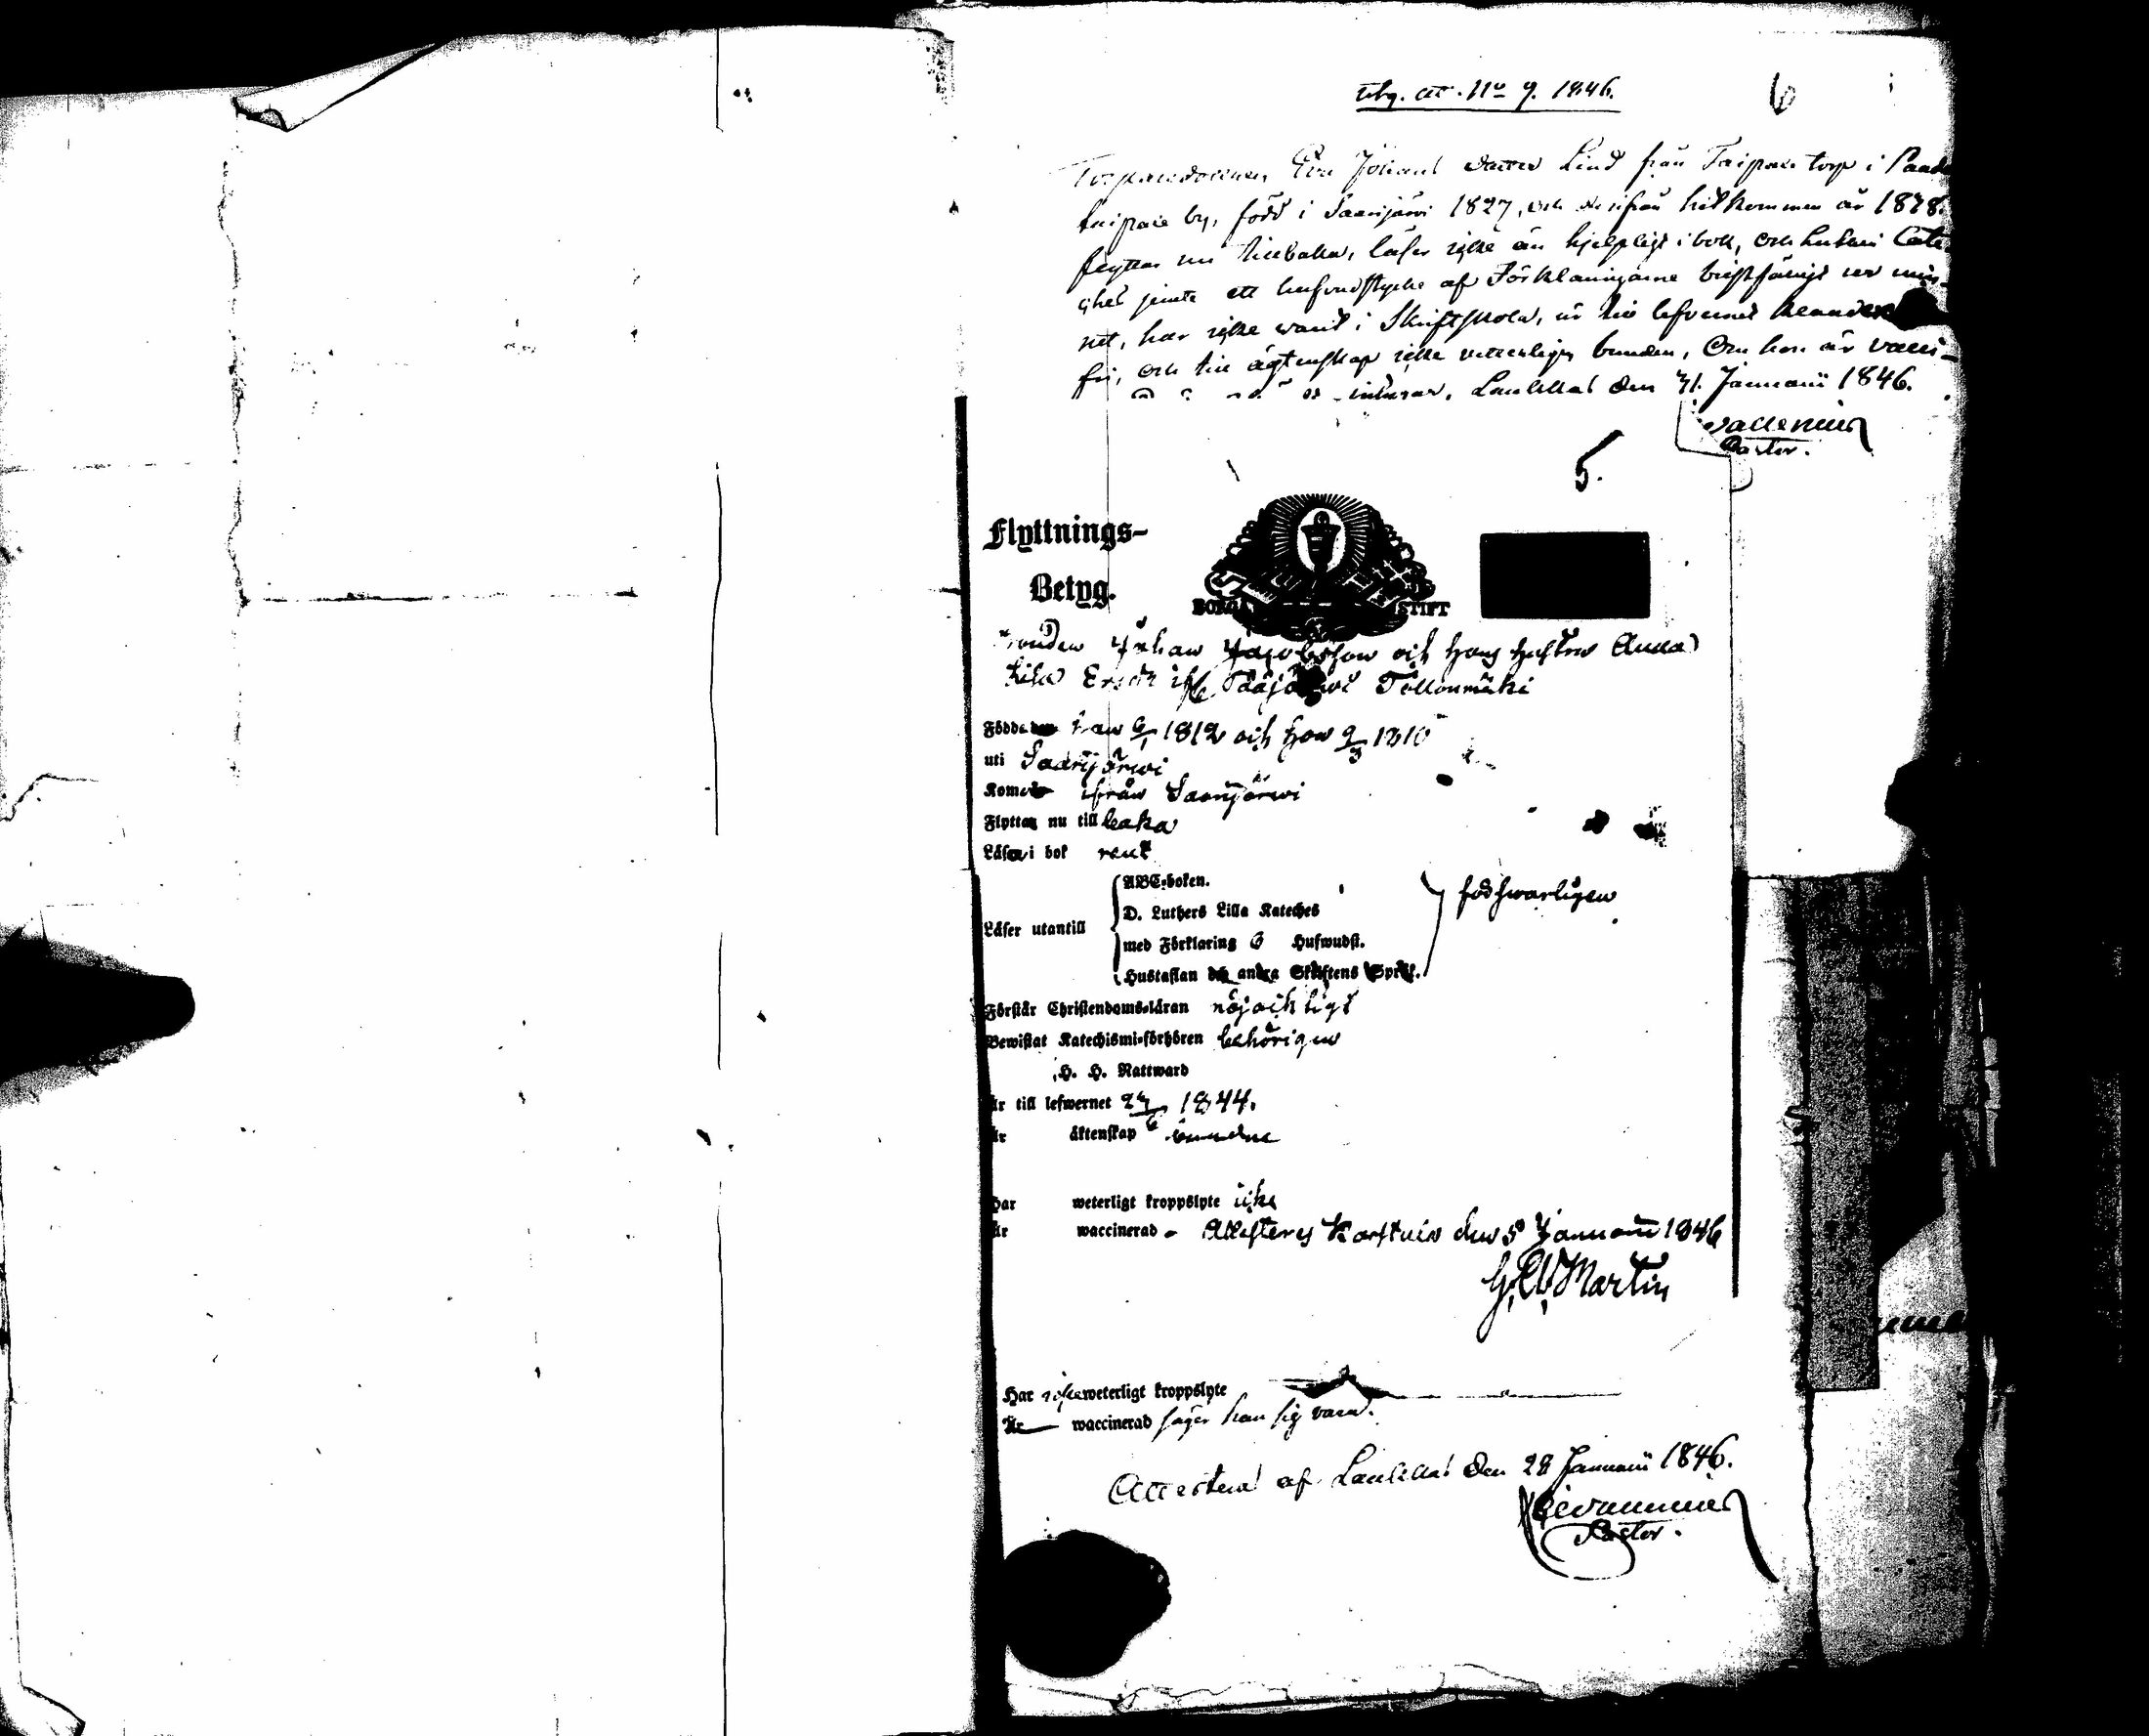 utg. att. No 9. 1846.
6
Eva Johans dotter Lind från Taipale torp i Paade
taipale by, född i Saarijärvi 1827, och derifrån hitkommen år 1828.
flyttar nu tillbaka, läser icke än hjelpligt i bok, och Lutheri Cate-
ches jemte ett hufvudstycke af Förklaringarne bristfäligt ur min-
net, har icke warit i Skriftskola, är till lefvernet
fri, och till ägtenskap icke vetterligen bunden, Om hon är vacci-
Laukkas den 31. Januarii 1846.
Pastor.
5.
Flyttnings-
Betyg.
BORGÅ STIFT
Johan Jacobsson och hans hustru Anna
Lisa Ersdr ifr. Pääjärwi Töllönmäki
Födde han 6/1 1812 och hon 9/3 1810
uti Saarijärwi
Komne ifrån Saarijärwi
Flytta nu till baka
Läsa i bok rent
ABC-boken.
D. Luthers Lilla Kateches
Läser utantill
med Förklaring 6 Hufwudst.
Hustaflan och andra Skriftens Språk.
förswarligen
Förstår Christendoms-läran nöjachtligt
Bewistat Katechismi-förhören behörigen
H. H. Nattward
Är till lefwernet 24/6 1844.
Är äktenskap bundne
Har weterligt kroppslyte icke
Är waccinerad - Attesteras Karstula den 5 Januarii 1846
G. W. Martin
Har icke weterligt kroppslyte
Är waccinerad säger han sig vara.
Attesterad af Laukkas den 28 Januarii 1846.
Pastor.